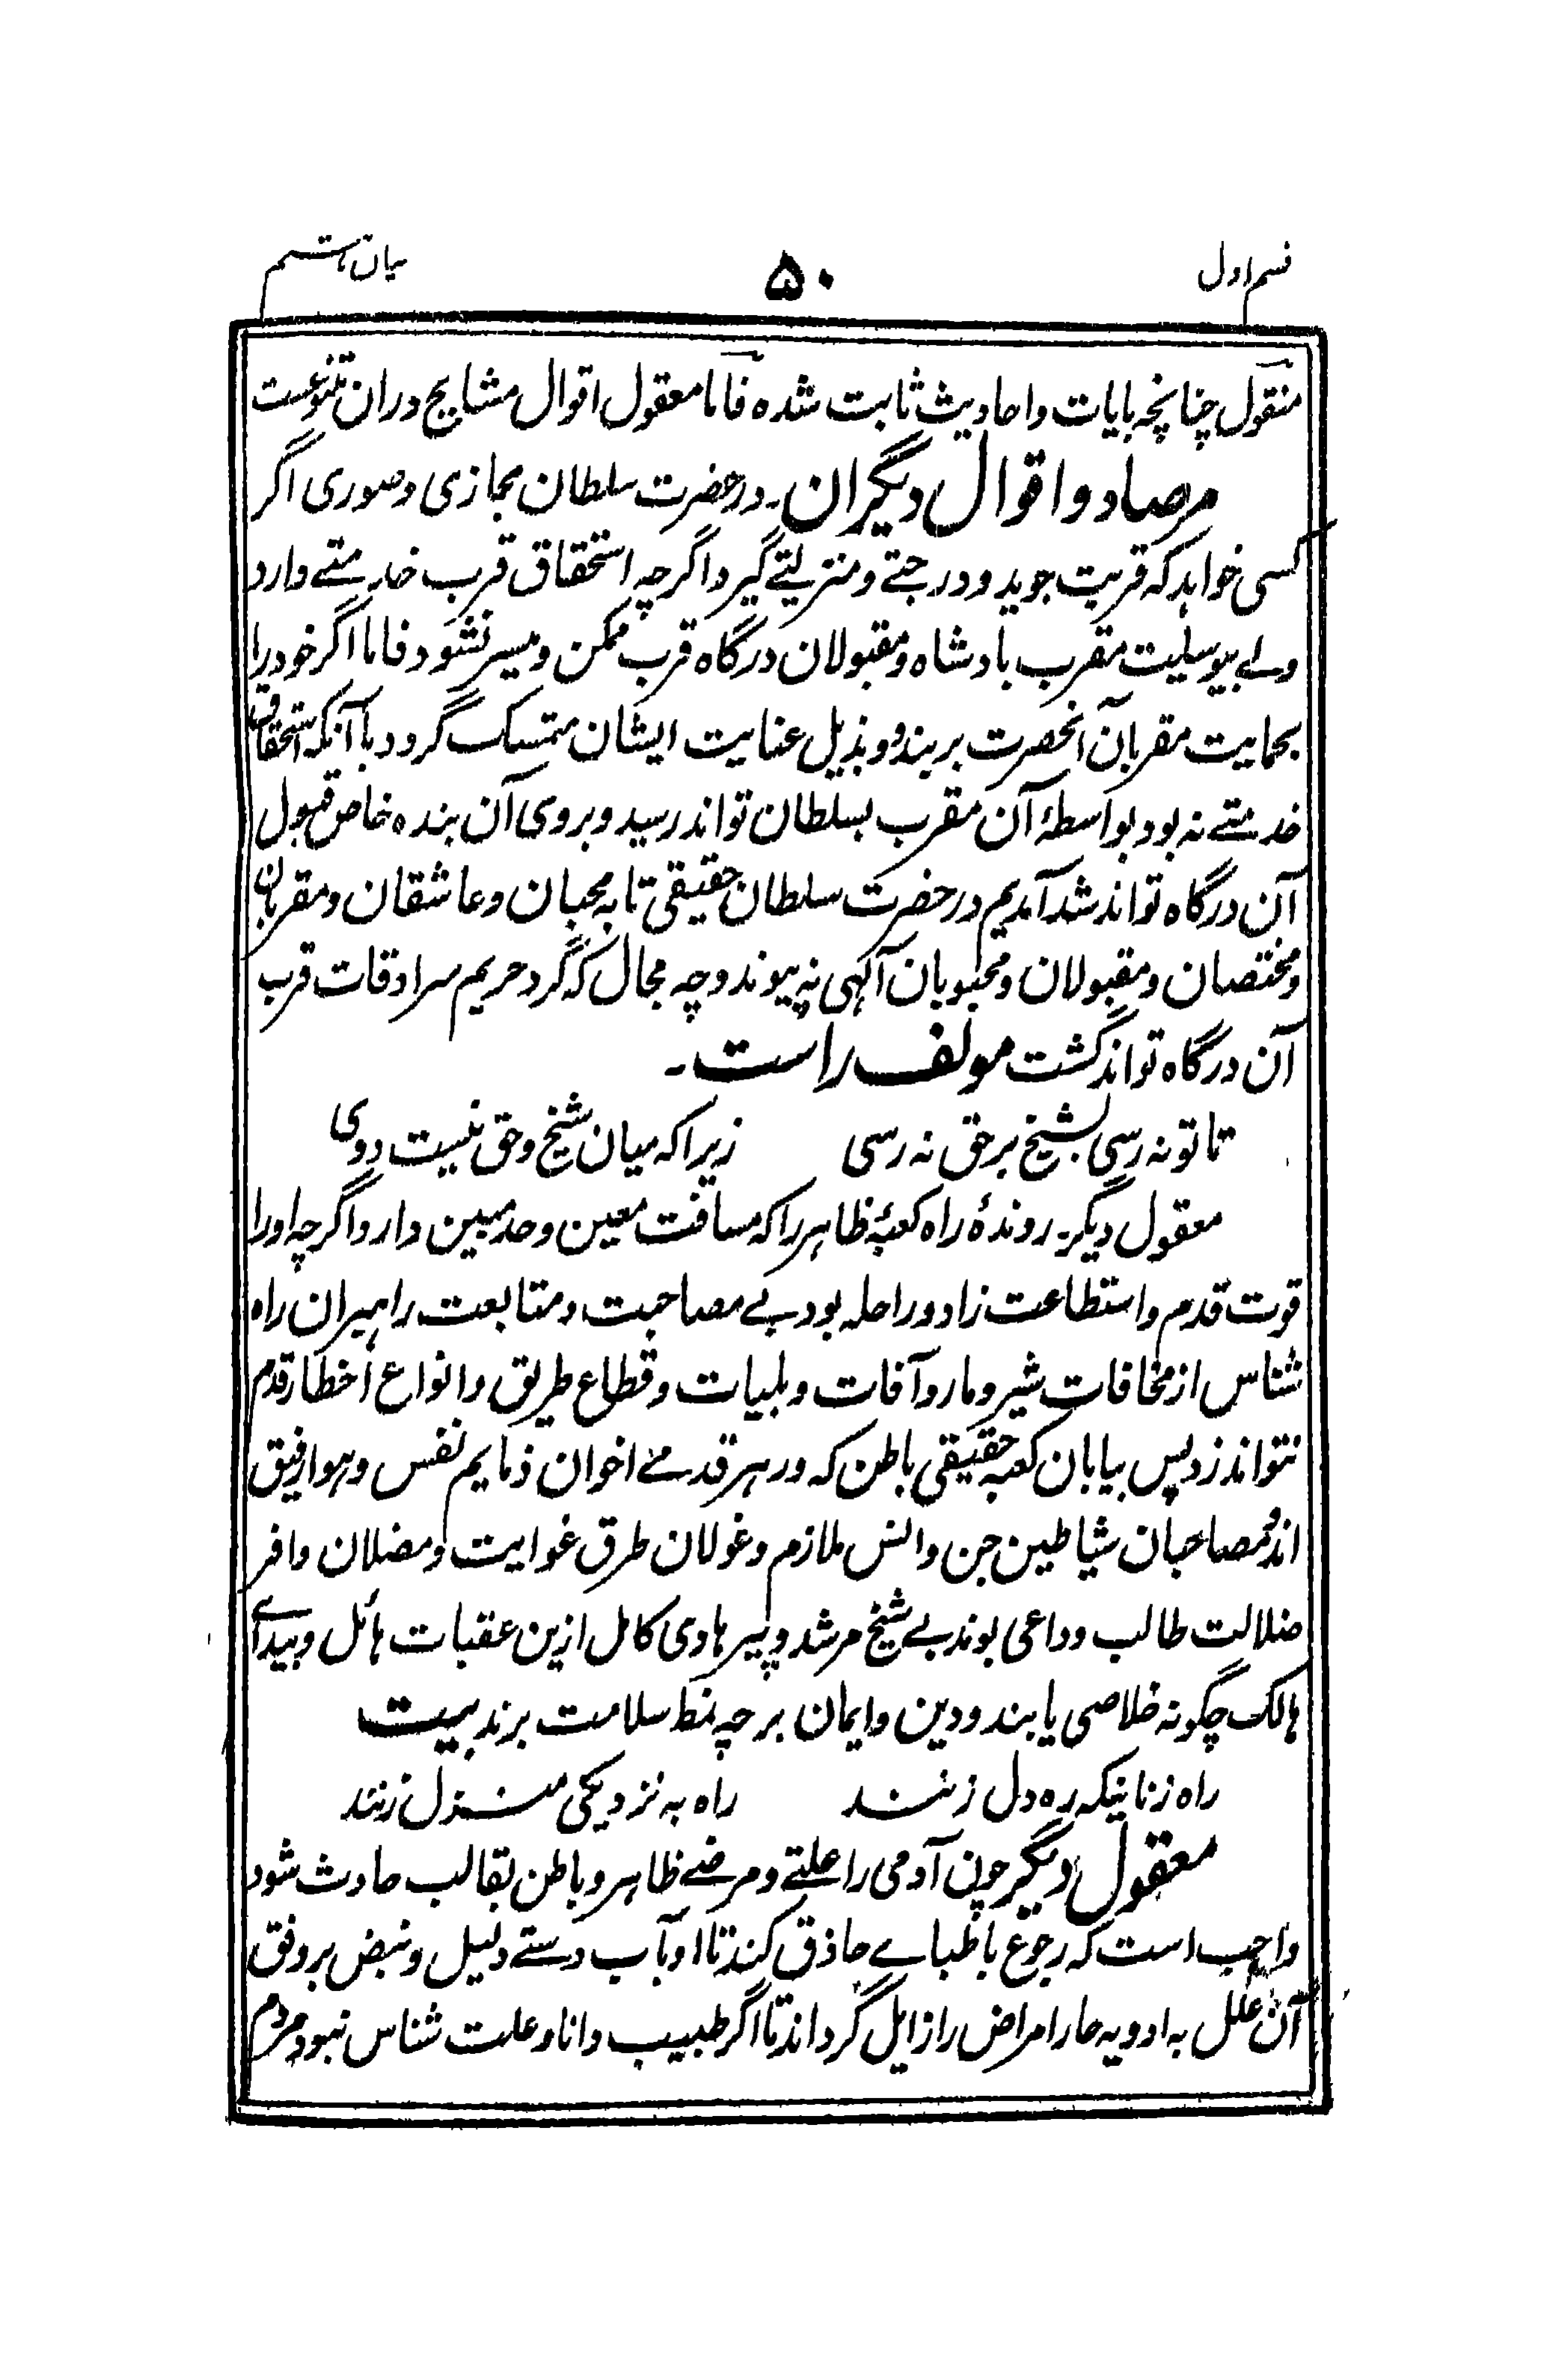 قسم اول
۵۰
بیان هشتم
منقول چنانچه بایات و احادیث ثابت شده فاما معقول اقوال مشایخ دران متنوعست
مرصاد و اقوال دیگران۔ در حضرت سلطان مجازی و صوری اگر
کسی خواهد که قربت جوید و درجتے و منزلتے گیرد اگرچه استحقاق قرب خدمتے دارد
ولے بیوسلیت مقرب بادشاه و مقبولان درگاه قرب ممکن و میسر نشود فاما اگر خود را
بحمایت مقربان آنحضرت بربندد و بذیل عنایت ایشان متمسک گردد با آنکه استحقاق
خدمتے نه بود بواسطۀ آن مقرب بسلطان تواند رسید و بروی آن بنده خاص قبول
آن درگاه تواند شد آمدیم در حضرت سلطان حقیقی تا به محبان و عاشقان و مقربان
و مختصان و مقبولان و محبوبان آلهی نه پیوندد چه مجال که گرد حریم سرادقات قرب
آن درگاه تواند گشت مولف راست۔
تا تو نه رسی بشیخ بر حق نه رسی زیرا که میان شیخ و حق نیست دوی
معقول دیگر۔ روندۀ راه کعبۀ ظاهر را که مسافت معین و حد مبین دارد اگرچه او را
قوت قدم و استطاعت زاد و راحله بود بے مصاحبت و متابعت راهبران راه
شناس از مخافات شیر و مار و آفات و بلیات و قطاع طریق و انواع اخطار قدم
نتواند زد پس بیابان کعبه حقیقی باطن که در هر قدمے اخوان ذمایم نفس و هوا رفیق
اند و مصاحبان شیاطین جن و انس ملازم و غولان طرق غوایت و مضلان وافر
ضلالت طالب و داعی بوند بے شیخ مرشد و پیر هادی کامل ازین عقبات هائل و بیدای
هالک چگونه خلاصی یابند و دین و ایمان بر چه نمط سلامت برند بیت
راه زنانیکه ره دل زنند راه به نزدیکی منزل زنند
معقول دیگر چون آدمی را علتے و مرضے ظاهر و باطن بقالب حادث شود
واجب است که رجوع باطبائے حاذق کند تا او بآب دستے دلیل و نبض بر وفق
آن علل به ادویه حار امراض را زایل گرداند تا اگر طبیب دانا و علت شناس نبود مردم